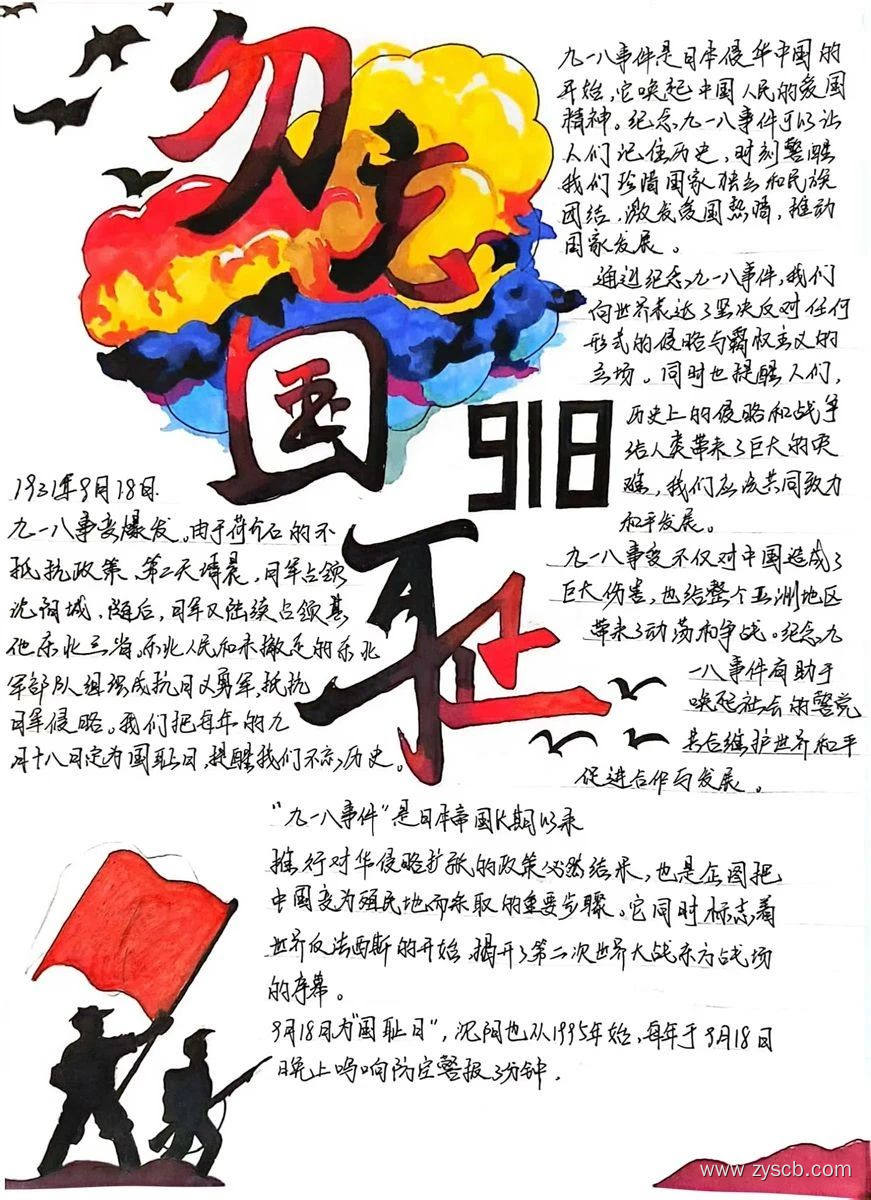 勿忘
国
耻
918
九一八事件是日本侵华中国的
开始,它唤起中国人民的爱国
精神。纪念九一八事件可以让
人们记住历史,时刻警醒
我们珍惜国家独立和民族
团结,激发爱国热情,推动
国家发展。
通过纪念九一八事件,我们
向世界表达了坚决反对任何
形式的侵略与霸权主义的
立场。同时也提醒人们,
历史上的侵略和战争
给人类带来了巨大的灾
难,我们应该共同致力
和平发展。
九一八事变不仅对中国造成了
巨大伤害,也给整个亚洲地区
带来了动荡和争战。纪念九
一八事件有助于
唤起社会的警觉
共合维护世界和平
促进合作与发展。
1931年9月18日
九一八事变爆发。由于蒋介石的不
抵抗政策、第二天清晨,日军占领
沈阳城,随后,日军又陆续占领其
他东北三省。东北人民和未撤走的东北
军部队组织成抗日义勇军,抵抗
日军侵略。我们把每年的九
月十八日定为国耻日,提醒我们不忘历史。
"九一八事件"是日本帝国长期以来
推行对华侵略扩张的政策必然结果,也是企图把
中国变为殖民地而采取的重要步骤。它同时标志着
世界反法西斯的开始,揭开了第二次世界大战东方战场
的序幕。
9月18日为"国耻日",沈阳也从1995年始,每年于9月18日
晚上鸣响防空警报3分钟.
www.zyscb.com